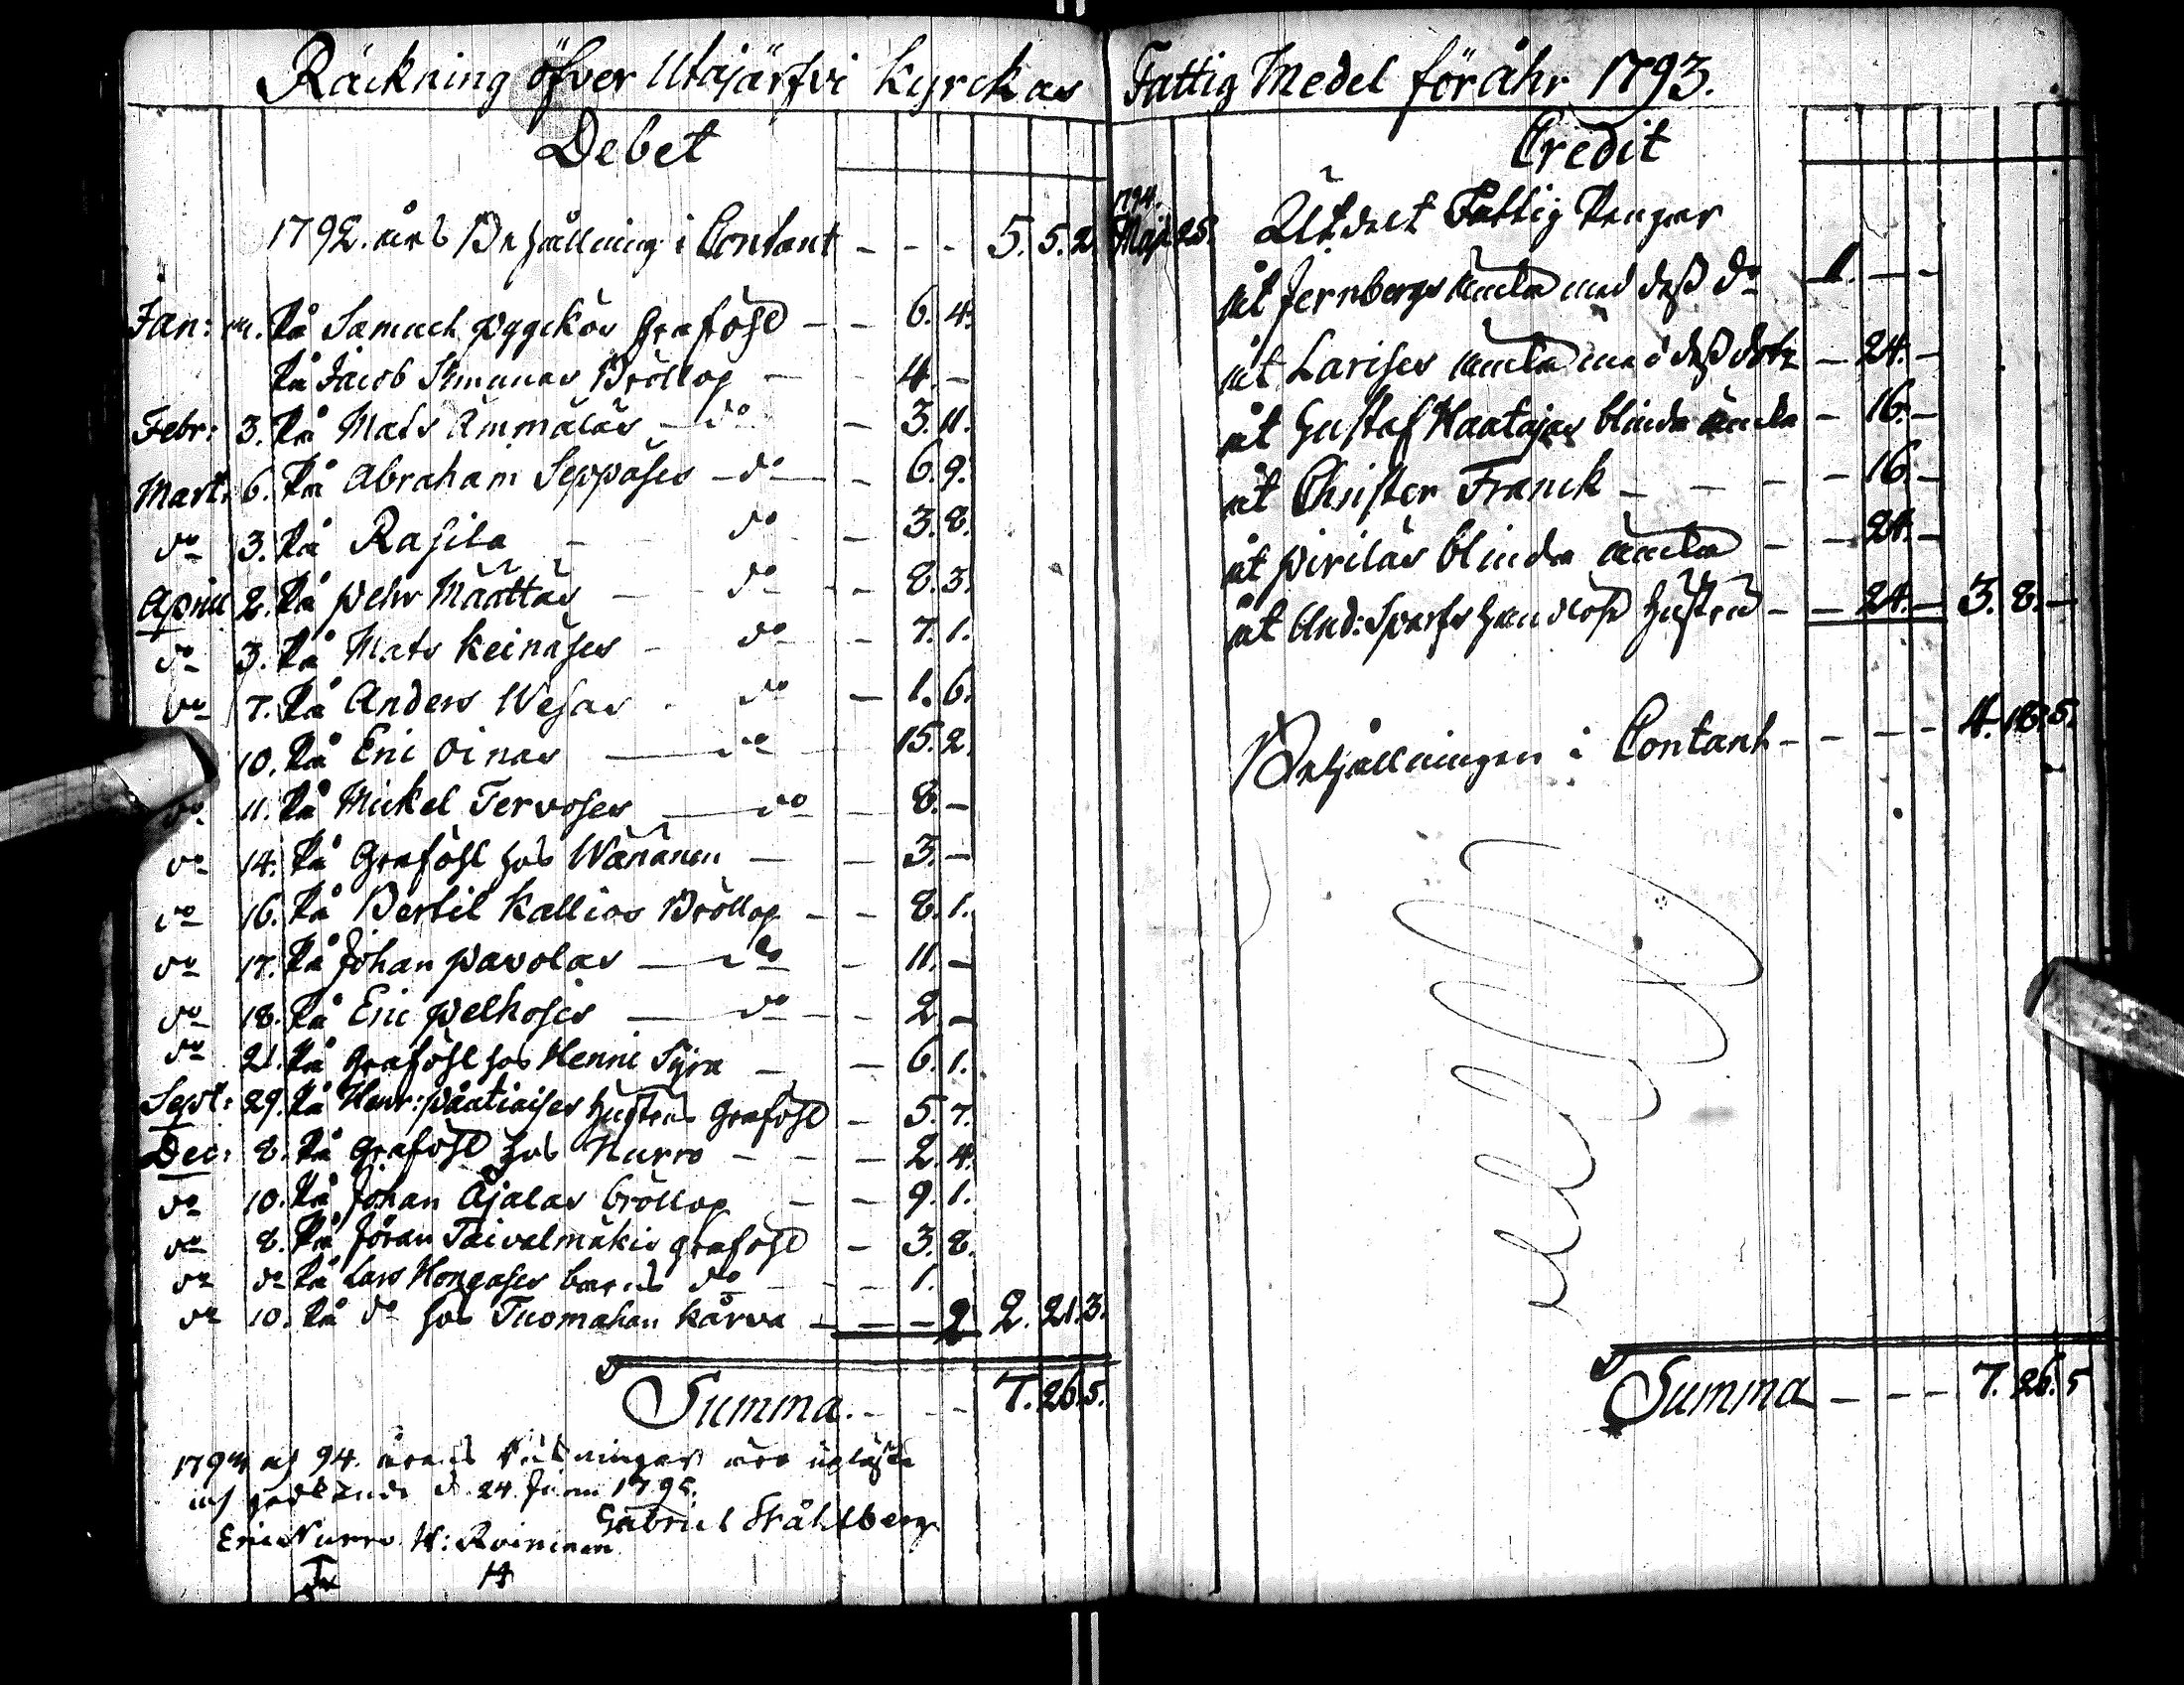 Räckning öfver Utajärfvi Kyrckas Fattig Medel för åhr 1793.
Debet
1792. års Behållning i Contant - - - 5. 5. 2.
Jan: På Samuel pyyckös Graföhl - - 6. 4.
På Jacob Bröllop - - 4. -
Febr: 3. På Mats Ämmäläs - do - 3. 11.
Mart: 6. På Abraham Seppäses - do - - 6. 9.
do 3. På Rasila - do - 3. 8.
April 2. På pehr Määttäs - do - - 8. 3.
do 3. På Mats Keinäses - do - 7. 1.
do 7. På Anders Wesas - do - 1. 6.
10. På Eric Oinas - do 15. 2.
do 11. På Mickel Tervoses - do - 8. -
do 14. På Graföhl hos Wänänen - - 3. -
do 16. På Bertil Kallios Bröllop - - 8. 1.
do 17. På Johan pavolas - do - 11. -
do 18. På Eric pelkoses - do - - 2. -
do 21. På Graföhl hos Henric Syrn - - 6. 1.
Sept: 29. På Henr: påatiaises hustrus Graföhl - 5. 7.
Dec: 8. På Graföhl hos Nurro - - - 2. 4.
do 10. På Johan Ojalas bröllop - - 9. 1.
do 8. På Jöran Taivalmäkis graföhl - 3. 8.
do do På Lars Hongases barns do - - 1.
do 10. På do hos Tuomahan Kärvä - - - 2 2. 21. 3.
Summa. - - - 7. 26. 5.
1793 och 94. årens Räkningar äro upläste
och godkände d. 24. Junii 1795.
Gabriel Ståhlberg
Eric Nurro. H: Roininen
Credit
1794.
Maji 25. Utdelt Fattig Pengar
åt Jernbergs änka med dess do - 1. - -
åt Larises änka med dess dotr - 24. -
åt Gustaf Haatajas blinda änka - 16. -
åt Christer Franck - - - - 16. -
åt pirilas blinda änka - - 24. -
åt And: Sparfs handlöse hustru - - 24. - 3. 8. -
Behållningen i Contant - - - - 4. 18. 5.
Summa - - - 7. 26. 5